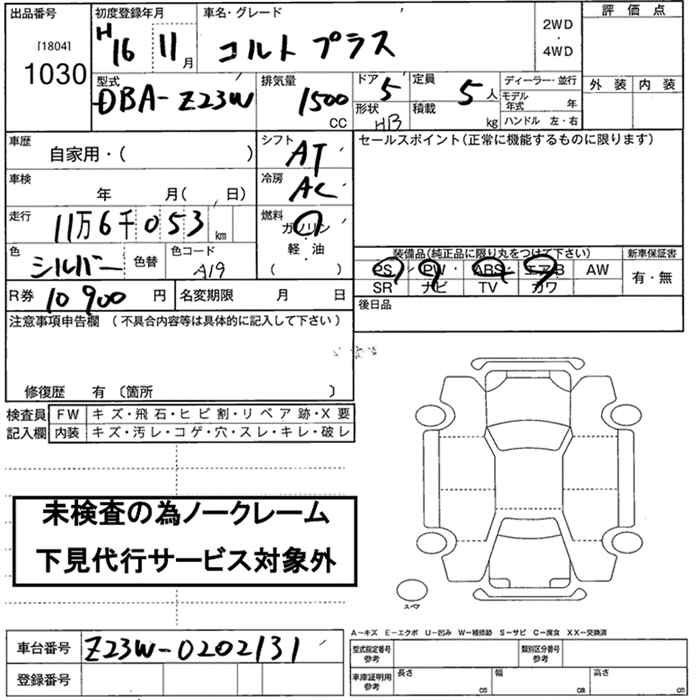 出品番号 初度登録年月 車名・グレード 2WD・4WD 評価点
[1804] H16 11月 コルトプラス
1030 外装 内装
型式 排気量 ドア 5 定員 5人 ディーラー・並行
DBA-Z23W 1500 CC 形状 HB 積載 kg モデル年式 年
ハンドル 左・右
車歴 自家用・( ) シフト AT セールスポイント(正常に機能するものに限ります)
車検 年 月( 日) 冷房 AC
走行 11万6千053 km 燃料 ガソリン
色 シルバー 色替 色コード A19 軽・油
( )
装備品(純正品に限り丸をつけて下さい) 新車保証書
PS PW ABS エアB AW 有・無
SR ナビ TV カワ
R券 10900 円 名変期限 月 日 後日品
注意事項申告欄 (不具合内容等は具体的に記入して下さい)
修復歴 有 〔箇所 〕
検査員 FW キズ・飛石・ヒビ割・リペア跡・X要
記入欄 内装 キズ・汚レ・コゲ・穴・スレ・キレ・破レ
未検査の為ノークレーム
下見代行サービス対象外
スペア
A-キズ E-エクボ U-凹み W-補修跡 S-サビ C-腐食 XX-交換済
車台番号 Z23W-0202131 型式指定番号 参考 類別区分番号 参考
登録番号 車庫証明用 参考 長さ cm 幅 cm 高さ cm